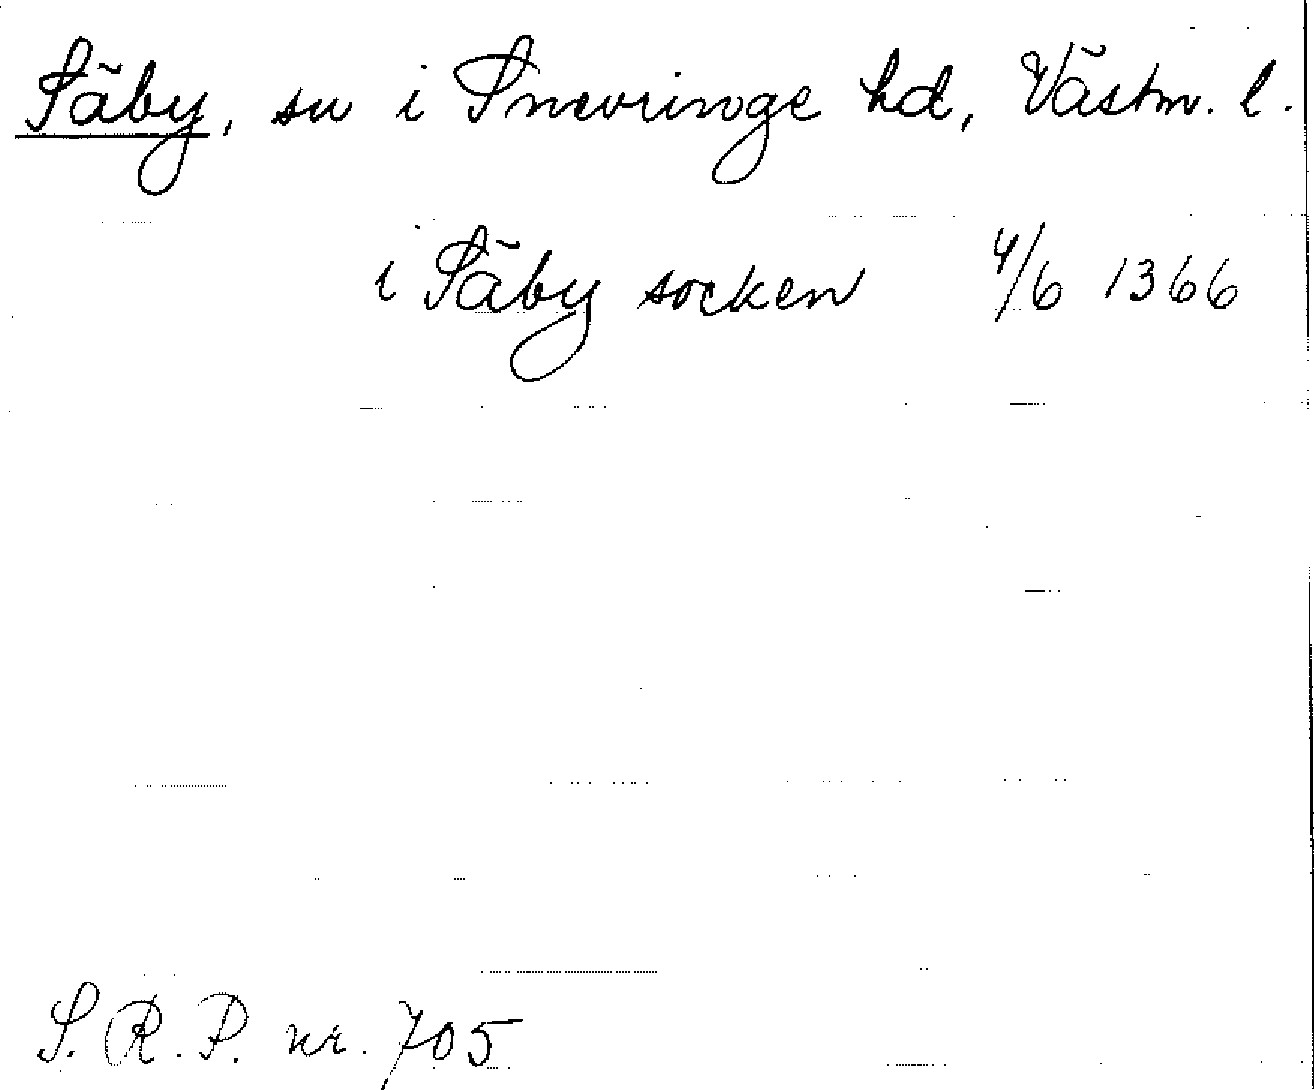 Säby, sn i Snevringe hd, Västm. l.
i Säby socken 4/6 1366
S.R.P. nr. 705